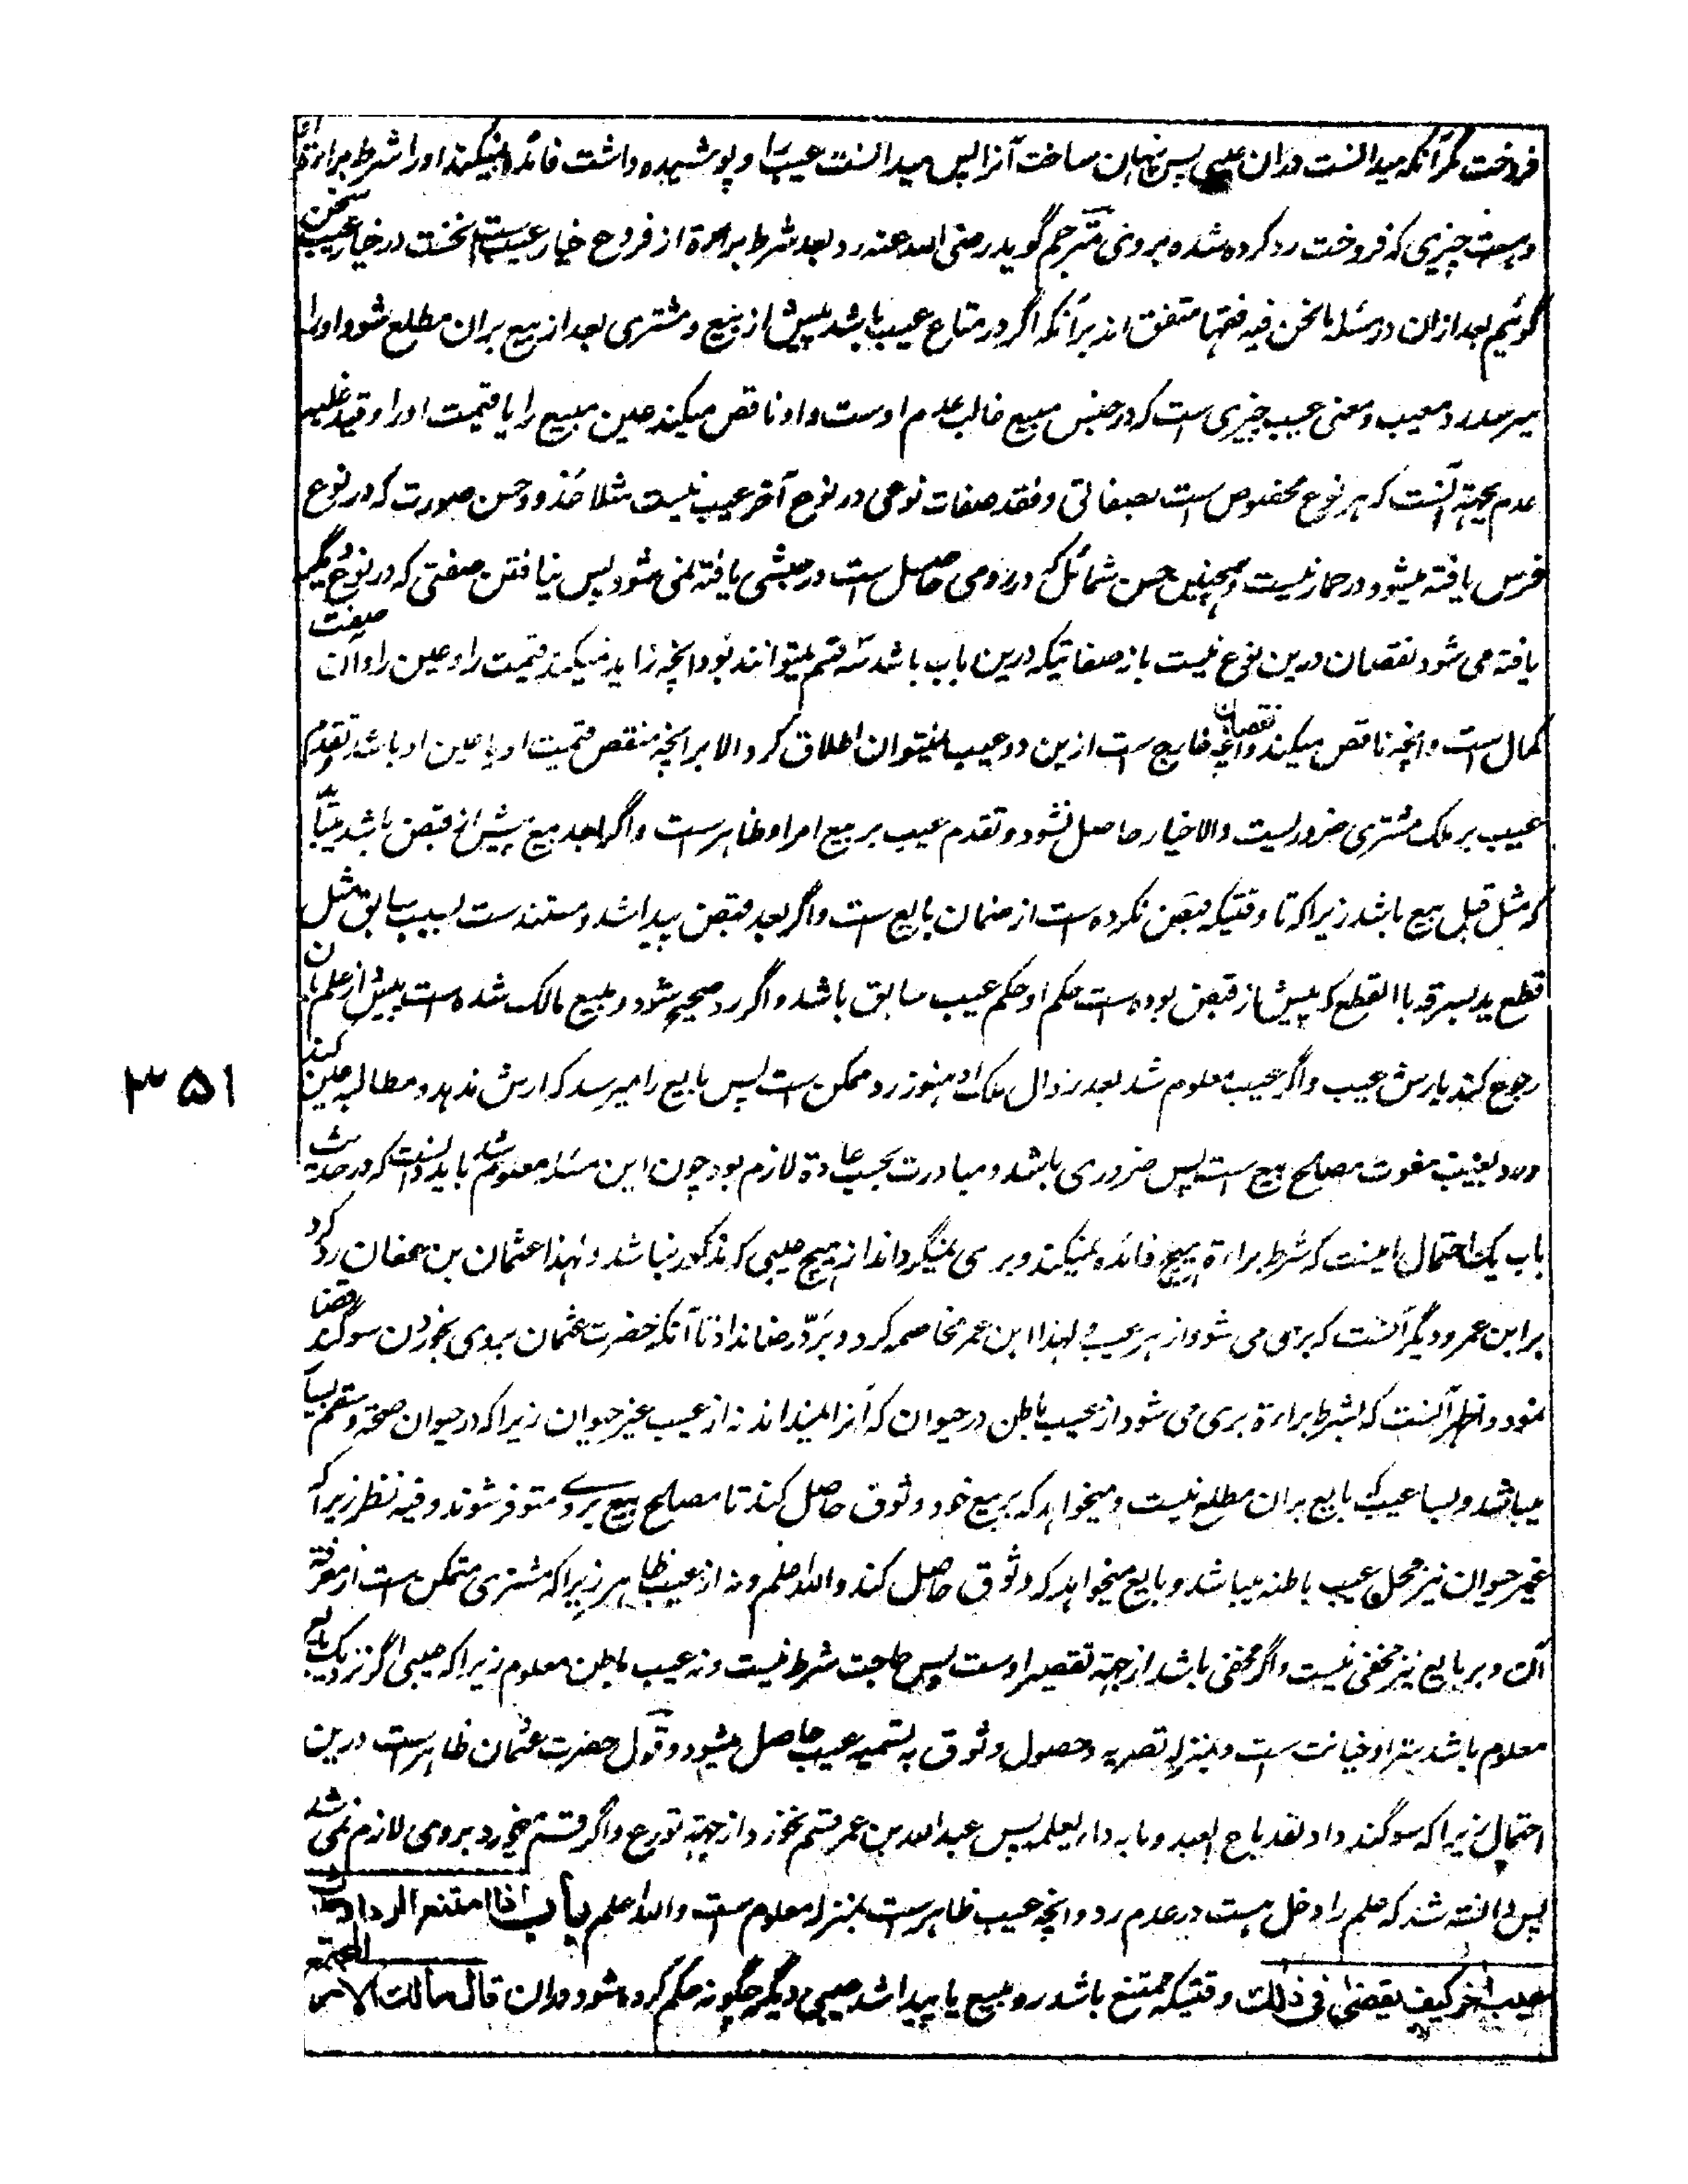 فروخت مگر آنکه میدانست دران عیبی پس پنهان ساخت آنرا پس میدانست عیب را و پوشیده داشت فائده نمیکند اورا شرط براءة آن
وهست چیزی که فروخت رد کرده شده بروی مترجم گوید رضی الله عنه رد بعد شرط براءة از فروع خیار عیب ست نخست در خیار عیب سخن
گوئیم بعد ازان در مسئله ما نحن فیه فقها متفق اند برآنکه اگر در متاع عیب باشد پیش از بیع و مشتری بعد از بیع بران مطلع شود اورا
میرسد رد معیب و معنی عیب چیزی ست که در جنس مبیع غالب عدم اوست و او ناقص میکند عین مبیع را یا قیمت اورا و قید غلبه
عدم بجهة آنست که هر نوع مخصوص است بصفاتی و فقد صفات نوعی در نوع آخر عیب نیست مثلا حسن صورت که در نوع
فرس یافته میشود در حمار نیست و همچنین حسن شمائل که در رومی حاصل است در حبشی یافته نمی شود پس نیافتن صفتی که در نوع دیگر
یافته می شود نقصان درین نوع نیست باز صفاتیکه درین باب باشد سه قسم میتوانند بود آنچه زاید میکند قیمت را و عین را و آن صفت
کمال است و آنچه ناقص میکند و آن نقصان و آنچه خارج ست ازین دو عیب نمیتوان اطلاق کرد الا بر آنچه منقص قیمت او یا عین او باشد و تقدم
عیب بر ملک مشتری ضروریست والا خیار حاصل نشود و تقدم عیب بر بیع امر او ظاهرست و اگر بعد بیع پیش از قبض باشد میباید
که مثل قبل بیع باشد زیرا که تا وقتیکه قبض نکرده است از ضمان بایع ست و اگر بعد قبض پیدا شد و مستندست بسبب سابق مثل
قطع ید بسرقه با القطع که پیش از قبض بوده است حکم او حکم عیب سابق باشد و اگر رد صحیح شود و مبیع مالک شده ست پیش از علم بآن
رجوع کند بارش عیب و اگر عیب معلوم شد بعد زوال ملک او هنوز رد ممکن ست پس بایع را میرسد که ارش ندهد و مطالبه عین کند
ورد بغیبت مفوت مصلح بیع است پس ضروری باشد و مبادرت بحسب عادة لازم بود چون این مسئله معلوم شد باید دانست که در حدیث
باب یک احتمال اینست که شرط براءة هیچ فائده نمیکند و بری نمیگرداند از هیچ عیبی که مذکور نباشد و لهذا عثمان بن عفان رد کرد
بر ابن عمر و دیگر آنست که بری می شود از هر عیب و لهذا ابن عمر مخاصمه کرد و برد رضا نداد تا آنکه حضرت عثمان بروی بخوردن سوگند قضا
نمود و اظهر آنست که بشرط براءة بری می شود از عیب باطن در حیوان که آنرا نمیداند نه از عیب غیر حیوان زیرا که در حیوان صحة و سقم بسیار
میباشد و بسا عیب که بایع بران مطلع نیست و میخواهد که بر بیع خود وثوق حاصل کند تا مصلح بیع بروے متوفر شوند و فیه نظر زیرا که
غیر حیوان نیز محل عیب باطنه میباشد و بایع میخواهد که وثوق حاصل کند والله اعلم و نه از عیب ظاهر زیرا که مشتری متمکن ست از معرفة
آن و بر بایع نیز مخفی نیست و اگر مخفی باشد از جهة تقصیر اوست پس حاجت شرط نیست و نه عیب باطن معلوم زیرا که عیبی اگر نزدیک بایع
معلوم باشد ستر او خیانت ست و بمنزله تصریه و حصول وثوق به تسمیه عیب حاصل میشود و قول حضرت عثمان ظاهرست درین
احتمال زیرا که سوگند داد لقد باع العبد وما به داء یعلمه پس عبدالله بن عمر قسم نخورد از جهة تورع و اگر قسم میخورد بروی لازم نمی شد
پس دانسته شد که علم را دخل هست در عدم رد و آنچه عیب ظاهرست بمنزله معلوم ست والله اعلم باب اذا امتنع الرد او حدث
عیب آخر کیف یقضی فی ذلک وقتیکه ممتنع باشد رد مبیع یا پیدا شد عیبی دیگر چگونه حکم کرده شود دران قال مالک الامر المجتمع
۳۵۱